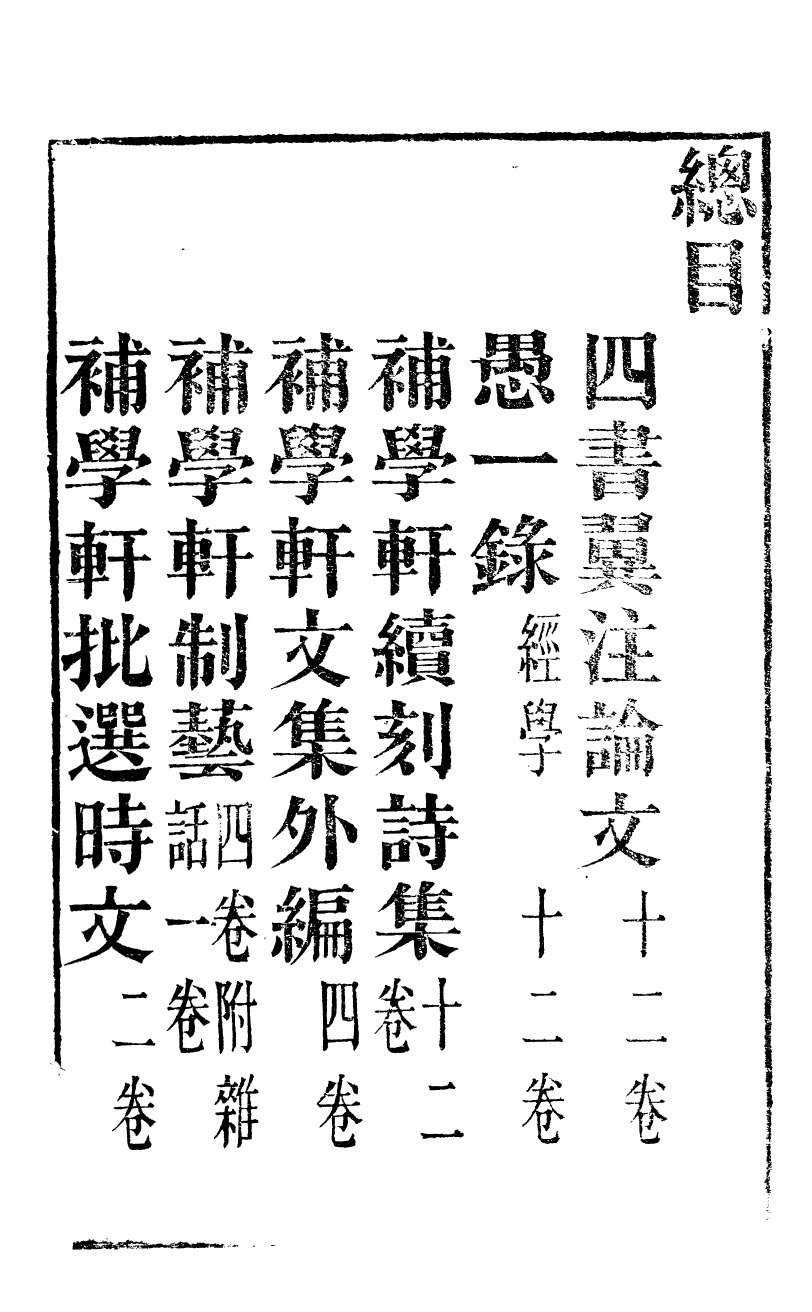 總目
四書翼注論文十二卷
愚一錄經學十二卷
補學軒續刻詩集十二卷
補學軒文集外編四卷
補學軒制藝四卷附雜話一卷
補學軒批選時文二卷